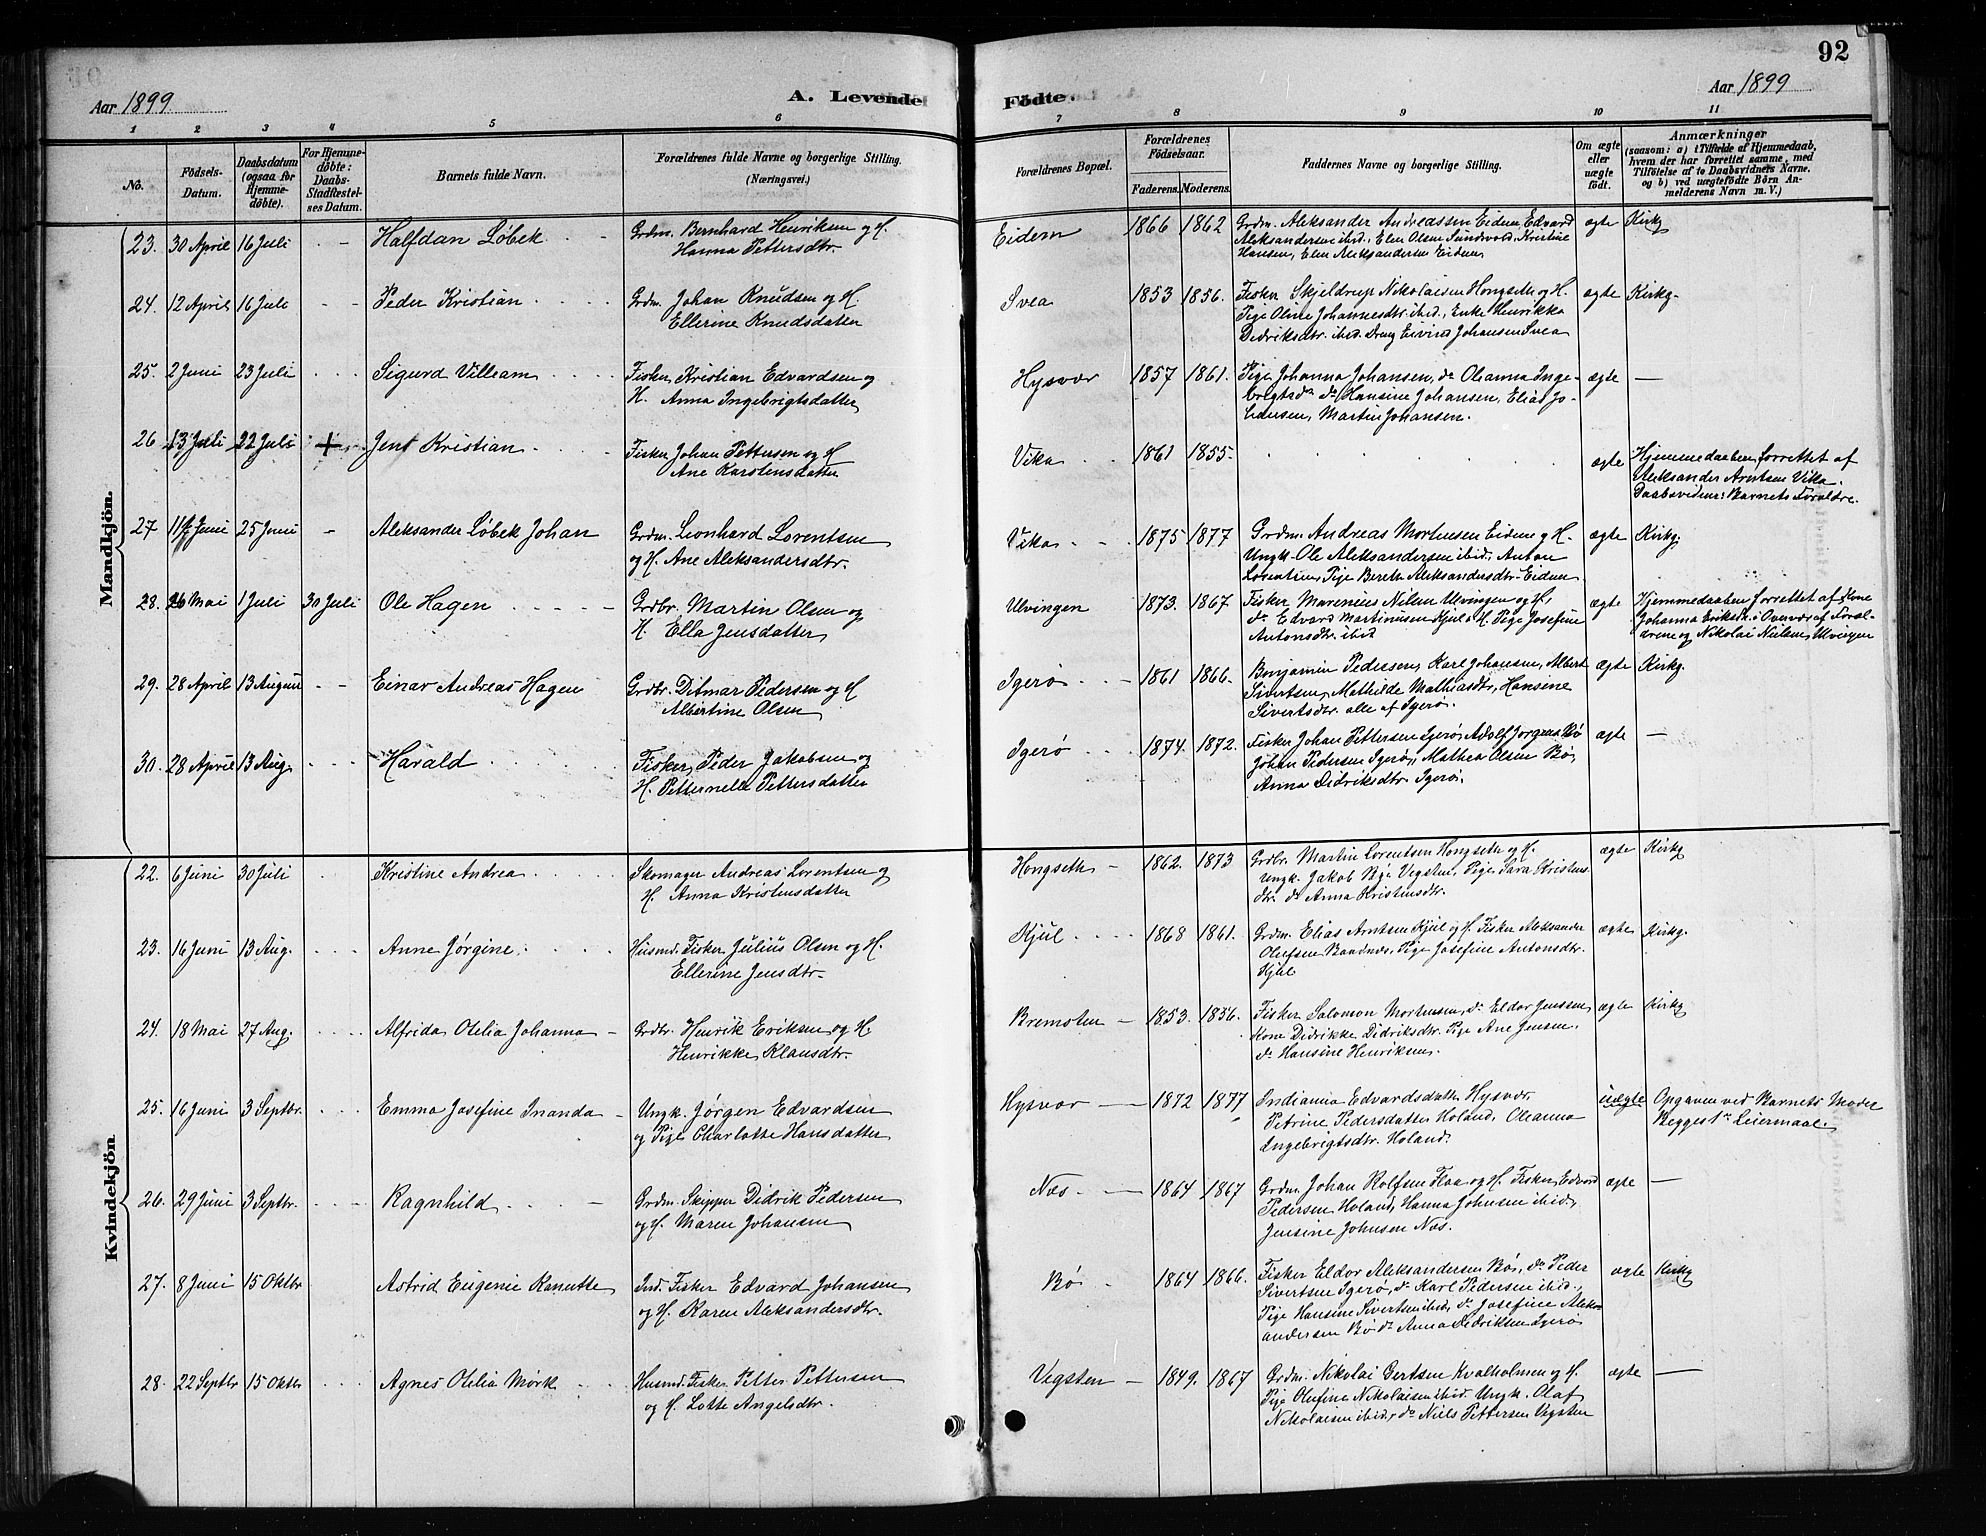 92
Aar 1899
A. Levende Födte.
Aar 1899
1 2 3 4 5 6 7 8 9 10 11
No.
Födsels-Datum.
Daabsdatum (ogsaa for Hjemme-döbte).
For Hjemme-döbte: Daabs-Stadfæstel-ses Datum.
Barnets fulde Navn.
Forældrenes fulde Navne og borgerlige Stilling. (Næringsvei.)
Forældrenes Bopæl.
Forældrenes Födselsaar.
Faderens. Moderens.
Faddernes Navne og borgerlige Stilling.
Om ægte eller uægte födt.
Anmærkninger
(saasom: a) i Tilfælde af Hjemmedaab, hvem der har forrettet samme, med Tilföielse af to Daabsvidners Navne, og b) ved uægtefödte Börn An-melderens Navn m. V.)
Mandkjön.
23. 30 April 16 Juli - Halfdan Løbek Grdm. Bernhard Henriksen og H. Eidem 1866 1862 Grdm. Aleksander Andreassen Eidem, Edvard ægte Kirkg
Hanna Pettersdtr. Aleksandersen ibid., Elen Olsen Sundvold, Kristine
Hansen, Elen Aleksandersen Eidem
24. 12 April 16 Juli - - Peder Kristian Grdm. Johan Knudsen og H. Svea 1853 1856. Fisker Skjeldrup Nikolaisen Hongseth og H. ægte Kirkg.
Ellerine Knudsdatter Pige Oline Johannesdtr. ibid., Enke Henrikka
Didriksdtr. ibid. Dreng Eivind Johansen Svea
25. 2 Juni 23 Juli Sigurd Villiam Fisker Kristian Edvardsen og Hysvær 1857 1861. Pige Johanna Johansen, do Oleanna Inge- ægte —
H. Anna Ingebrigtsdatter brigtsdr. do Hansine Johansen, Elias Jo-
hansen, Martin Johansen.
26 13 Juli 22 Juli + Jent Kristian Fisker Johan Pettersen og H Vika 1861 1855. ægte Hjemmedaaben forrettet af
Ane Karstensdatter Aleksander Arntsen Vika.
Daabsvidner: Barnets Forældre.
27 11 Juni 25 Juni - Aleksander Løbek Johan Grdm. Leonhard Lorentsen Vika 1875 1877 Grdm. Andreas Mortensen Eidem og H. ægte Kirkg.
og H. Ane Aleksandersdtr. Ungk. Ole Aleksandersen ibid., Anton
Lorentsen, Pige Bereth Aleksandersdtr. Eidem
28. 26 Mai 1 Juli 30 Juli Ole Hagen Grdbr. Martin Olsen og Ulvingen 1873. 1867 Fisker Marenius Nilsen Ulvingen og H. ægte Hjemmedaaben forrettet af Kone
H. Ella Jensdatter do Edvard Martinusen Kjul & H. Pige Josefine Johanna Eriksdtr. i Overvær af Foræl-
Antonsdtr. ibid drene og Nikolai Nilsen, Ulvingen
29. 28 April 13 August - - Einar Andreas Hagen Grdbr. Ditmar Pedersen og H Igerø 1861 1866. Benjamin Pedersen, Karl Johansen, Albert ægte Kirkg.
Albertine Olsen Sivertsen, Mathilde Mathiasdtr., Hansine
Sivertsdtr. alle af Igerø.
30. 28 April 13 Aug. Harald Fisker Peder Jakobsen og Igerø 1874. 1872. Fisker Johan Pettersen Igerø, Adolf Jørgens. Bø ægte —
H. Petternelle Pettersdatter Johan Pedersen Igerø, Mathea Olsen Bø,
Anna Didriksdtr. Igerø.
Kvindekjön.
22. 6 Juni 30 Juli Kristine Andrea Skomager Andreas Lorentsen og Hongseth 1862. 1873 Grdbr. Martin Lorentsen Hongseth og H. ægte Kirkg
H. Anna Kristensdatter Ungk. Jakob Bøe Vegsten, Pige Sara Kristens
dtr. do Anna Kristensdtr.
23. 16 Juni 13 Aug. Anne Jørgine. Husmd. Fisker Julius Olsen og H. Kjul 1868 1861. Grdm. Elias Arntsen Kjul og H. Fisker Aleksander ægte Kirkg.
Ellerine Jensdtr. Olufsen Baadnes, Pige Josefine Antonsdtr.
Kjul
24. 18 Mai 27 Aug. Alfrida Otelia Johanna Grdbr. Henrik Eriksen og H. Bremsten 1853. 1856. Fisker Salomon Mortensen, do Eldor Jenssen, ægte Kirkg
Henrikke Klausdtr. Kone Didrikke Didriksdtr. Pige Ane Jensen,
do Hansine Henriksen.
25. 16 Juni 3 Septbr. Emma Josefine Inanda Ungk. Jørgen Edvardsen Hysvær 1872 1877 Indianna Edvardsdatter Hysvær, uægte Opgaven ved Barnets Moder
og Pige Charlotte Hansdatter Petrine Pedersdatter Holand, Oleanna Begges 1ste Leiermaal.
Ingebrigtsdtr. Holand.
26. 29 Juni 3 Septbr. Ragnhild Grdm. Skipper Didrik Pedersen Næs 1864 1867 Grdm. Johan Rolfsen Flaa og H. Fisker Edvard ægte —
og H. Maren Johansen Pedersen Holand, Hanna Johnsen ibid.,
Jensine Johnsen Næs.
27. 8 Juni 15 Oktbr Astrid Eugenie Ranutte Ind. Fisker Edvard Johansen Bø 1864 1866. Fisker Eldor Aleksandersen Bø, do Peder ægte Kirkg
og H. Karen Aleksandersdtr. Sivertsen Igerø, do Karl Pedersen ibid.,
Pige Hansine Sivertsen ibid, do Josefine Aleks-
andersen Bø do Anna Didriksen Igerø
28. 22 Septbr 15 Oktbr Agnes Otelia Mørk Husmd. Fisker Petter Pettersen Vegsten 1849. 1867 Grdm. Nikolai Gertsen Kvalholmen og H. ægte —
og H. Lotte Angelsdtr. Pige Olufine Nikolaisen ibid. Ungk. Olaf
Nikolaisen ibid, do Niels Pettersen Vegsten